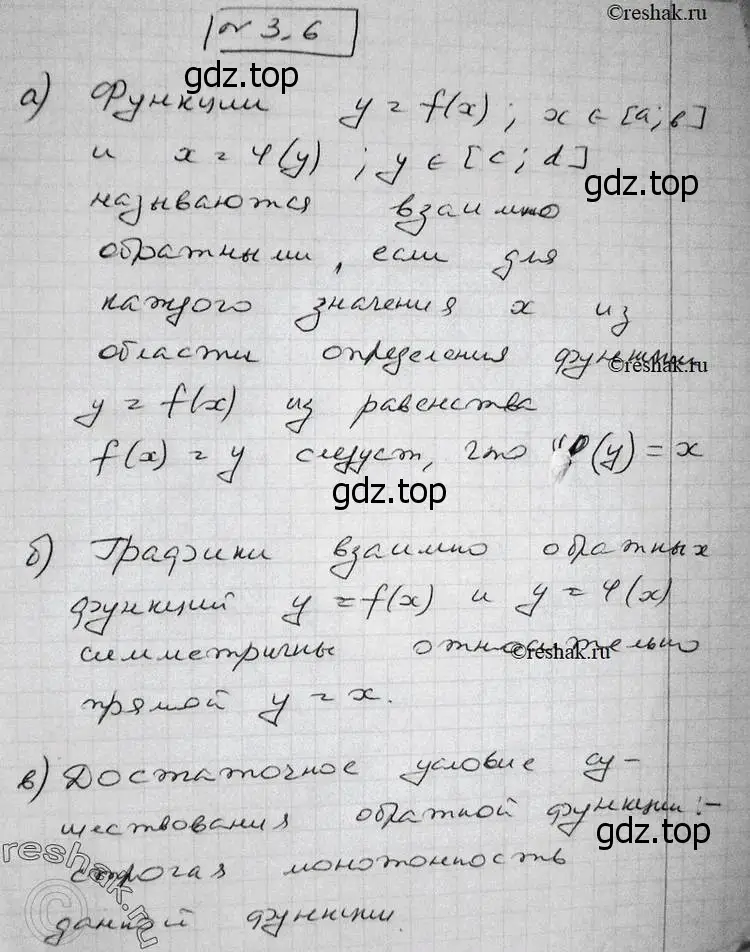 ©reshak.ru
№ 3.6
gdz.top
а) Функции y = f(x); x ∈ [a; в]
и x = φ(y); y ∈ [c; d]
gdz.top
называются взаимно
обратными, если для
каждого значения x из
области определения функции
©reshak.ru
y = f(x) из равенства
f(x) = y следует, что φ(y) = x
gdz.top
б) Графики взаимно обратных
функций y = f(x) и y = φ(x)
симметричны относительно
©reshak.ru
прямой y = x.
в) Достаточное условие су-
ществования обратной функции:-
gdz.top
строгая монотонность
reshak.ru
данной функции.